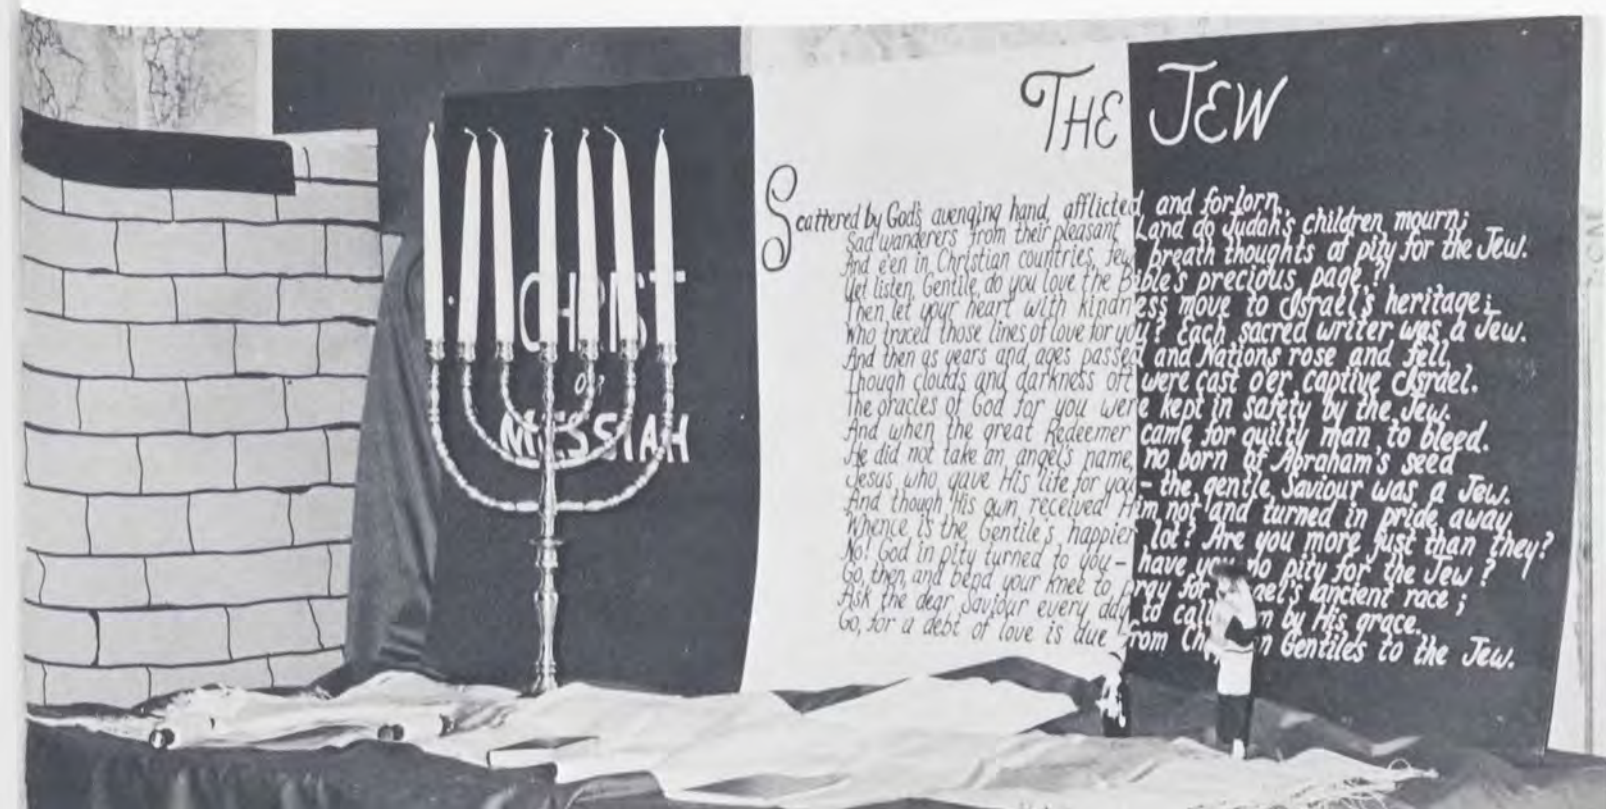 CHRIST
our
MESSIAH
THE JEW
Scattered by God's avenging hand, afflicted and forlorn,
Sad wanderers from their pleasant Land do Judah's children mourn;
And e'en in Christian countries, few breath thoughts of pity for the Jew.
Yet listen, Gentile, do you love the Bible's precious page?
Then let your heart with kindness move to Israel's heritage;
Who traced those lines of love for you? Each sacred writer was a Jew.
And then as years and ages passed and Nations rose and fell,
Though clouds and darkness oft were cast o'er captive Israel.
The oracles of God for you were kept in safety by the Jew.
And when the great Redeemer came for guilty man to bleed.
He did not take an angel's name, no born of Abraham's seed
Jesus who gave His life for you - the gentle Saviour was a Jew.
And though His own received Him not and turned in pride away
Whence is the Gentile's happier lot? Are you more just than they?
No! God in pity turned to you - have you no pity for the Jew?
Go, then, and bend your knee to pray for ael's ancient race;
Ask the dear Saviour every day to call m by His grace.
Go, for a debt of love is due from Ch n Gentiles to the Jew.